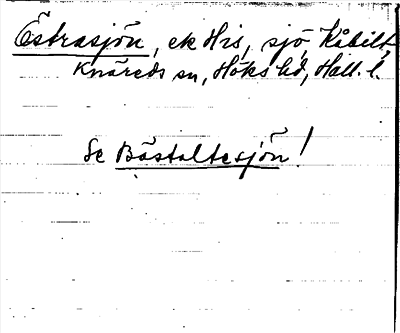 Estrasjön, ek His, sjö, Kåbilt,
Knäreds sn, Höks hd, Hall. l.
Se Bästaltesjön!